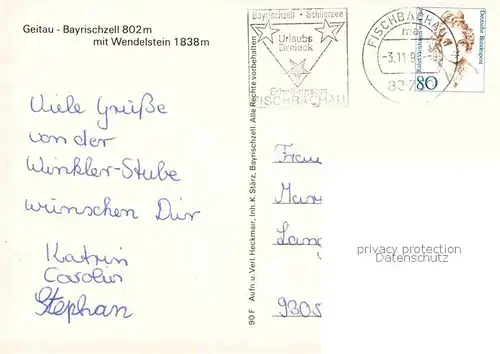 Geitau - Bayrischzell 802m
mit Wendelstein 1838m
Bayrischzell · Schliersee
Urlaubs
Dreieck
Erholungsort
FISCHBACHAU
FISCHBACHAU
-3.11.9
Deutsche Bundespost
80
Viele Grüße
von der
Winkler-Stube
wünschen Dir
Katrin
Carolin
Stephan
90 F Aufn. u. Verl. Heckmair, Inh. K. Stärz, Bayrischzell. Alle Rechte vorbehalten
Frau
930
privacy protection
Datenschutz